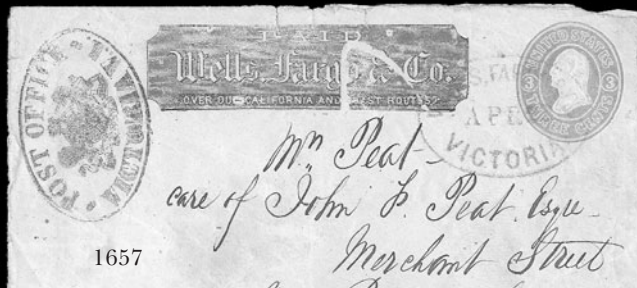 POST OFFICE * VICTORIA *
PAID
Wells, Fargo & Co.
OVER OUR CALIFORNIA AND COAST ROUTES
UNITED STATES
3 3
THREE CENTS
APR
VICTORIA
Peat
care of John Peat Esqre
Merchant Street
1657